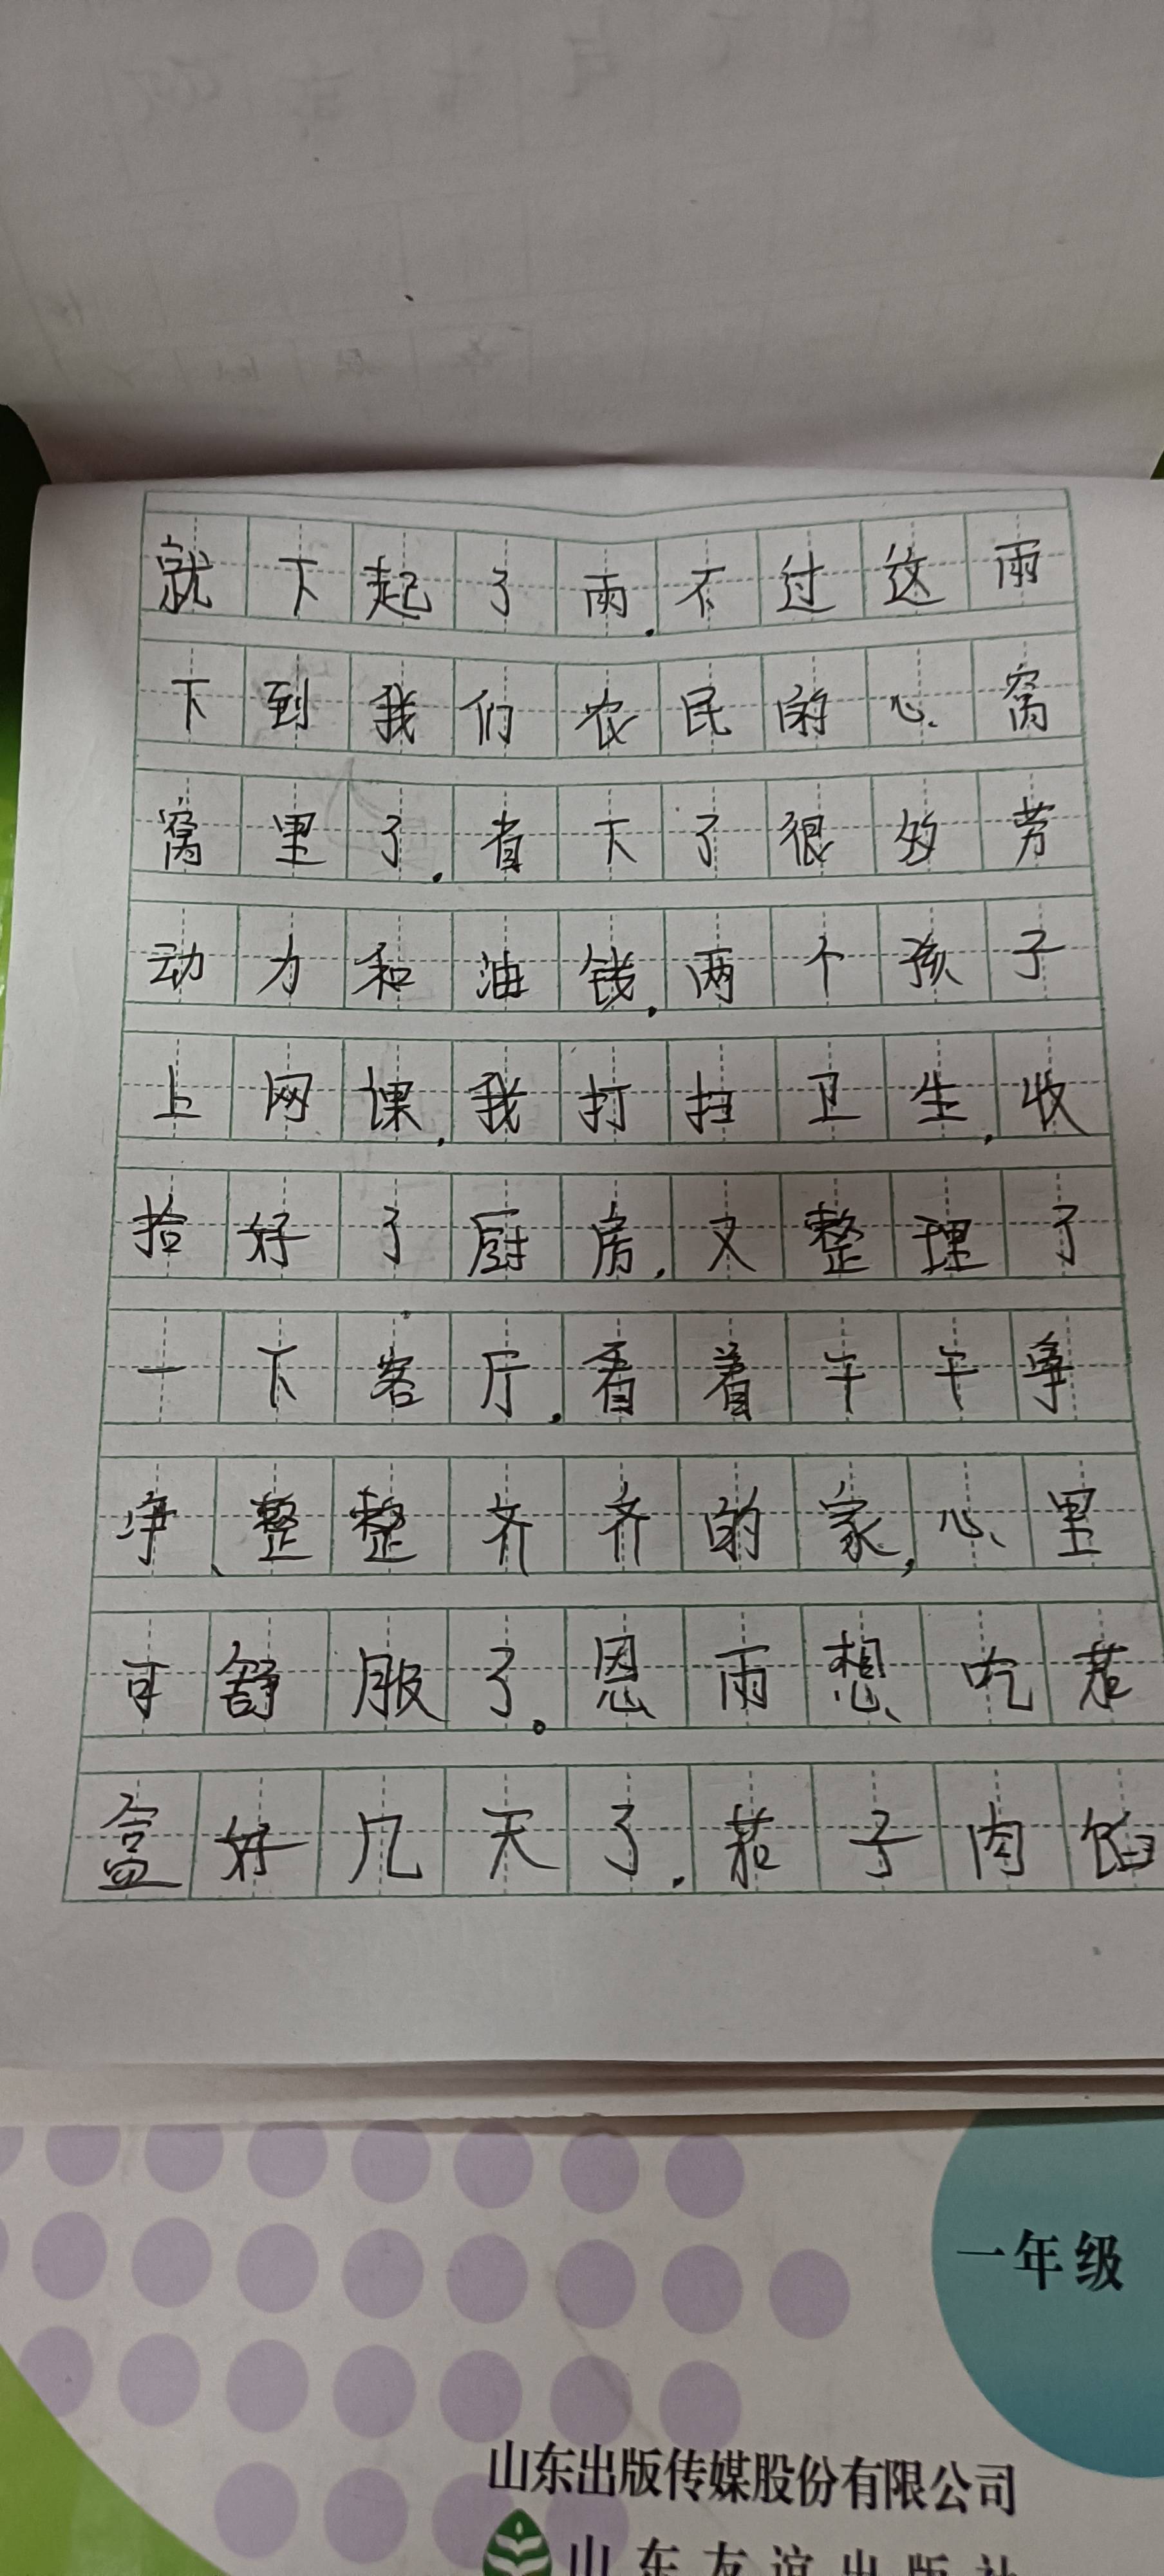 就下起了雨.不过这雨
下到我们农民的心窝
窝里了.省下了很多劳
动力和油钱.两个孩子
上网课.我打扫卫生.收
拾好了厨房.又整理了
一下客厅.看着干干净
净、整整齐齐的家,心里
可舒服了。恩雨想吃菜
盒好几天了.菜子肉馅
一年级
山东出版传媒股份有限公司
山东友谊出版社